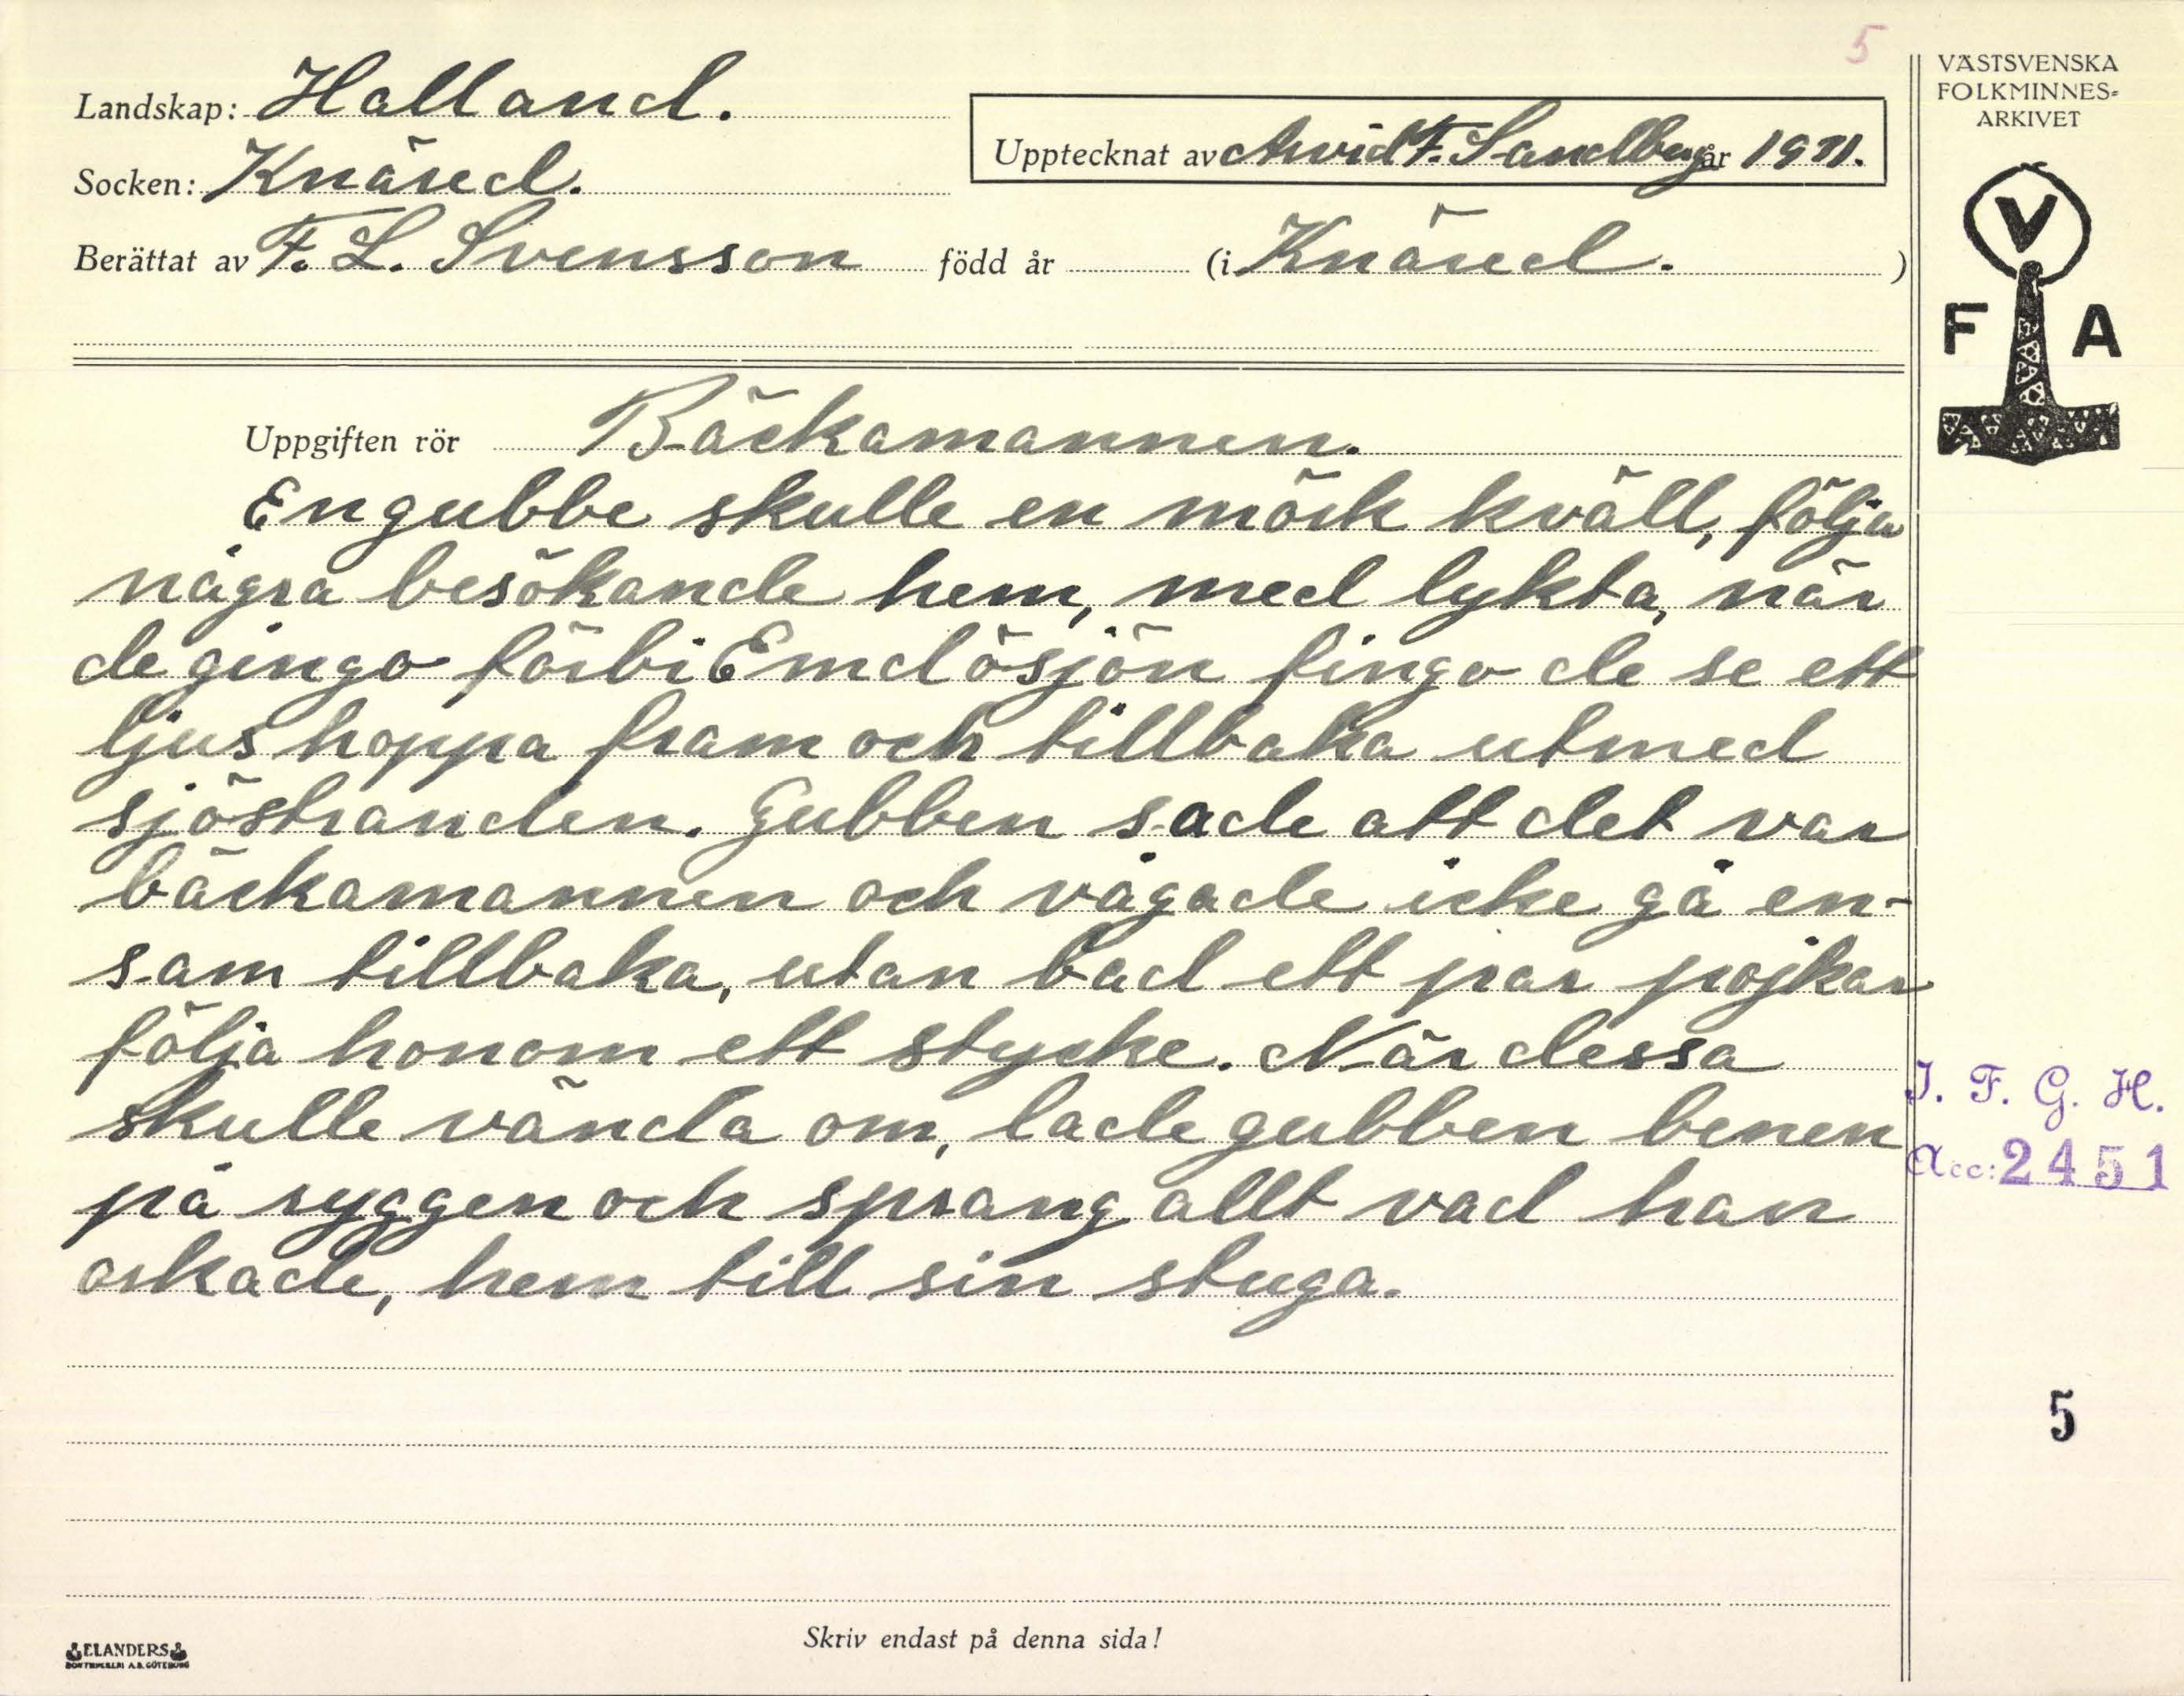 5
VÄSTSVENSKA
FOLKMINNES-
ARKIVET
Landskap: Halland.
Upptecknat av Arvid F. Sandberg år 1931.
Socken: Knäred.
Berättat av F. L. Svensson född år (i Knäred. )
V
F A
Uppgiften rör Bäckamannen.
En gubbe skulle en mörk kväll, följa
några besökande hem, med lykta, när
de gingo förbi Emdösjön fingo de se ett
ljus hoppa fram och tillbaka utmed
sjöstranden. Gubben sade att det var
bäckamannen och vågade icke gå en-
sam tillbaka, utan bad ett par pojkar
följa honom ett stycke. När dessa
skulle vända om, lade gubben benen
på ryggen och sprang allt vad han
orkade, hem till sin stuga.
I. F. G. H.
Acc: 2451
5
Skriv endast på denna sida!
ELANDERS
BOKTRYCKERI A.B. GÖTEBORG